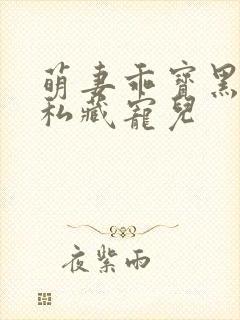 萌妻乖寶黑
私藏寵兒
夜紫雨